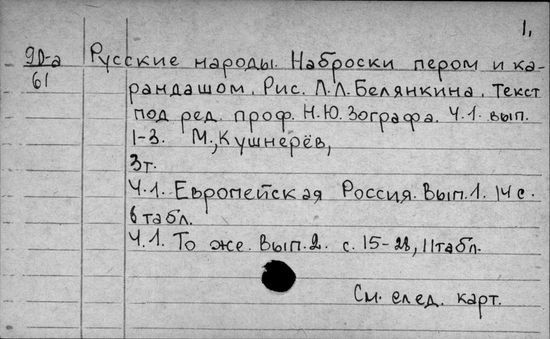 1.
90-а Русские народы. Наброски пером и ка-
61 рандашом. Рис. Л.Л.Белянкина. Текст
под ред. проф. Н.Ю.Зографа. Ч.1. вып.
1-3. М., Кушнерёв,
3т.
Ч.1. Европейская Россия. Вып.1. 14 с.
6 табл.
Ч.1. То же. Вып.2. с. 15-28, 11 табл.
См. след. карт.